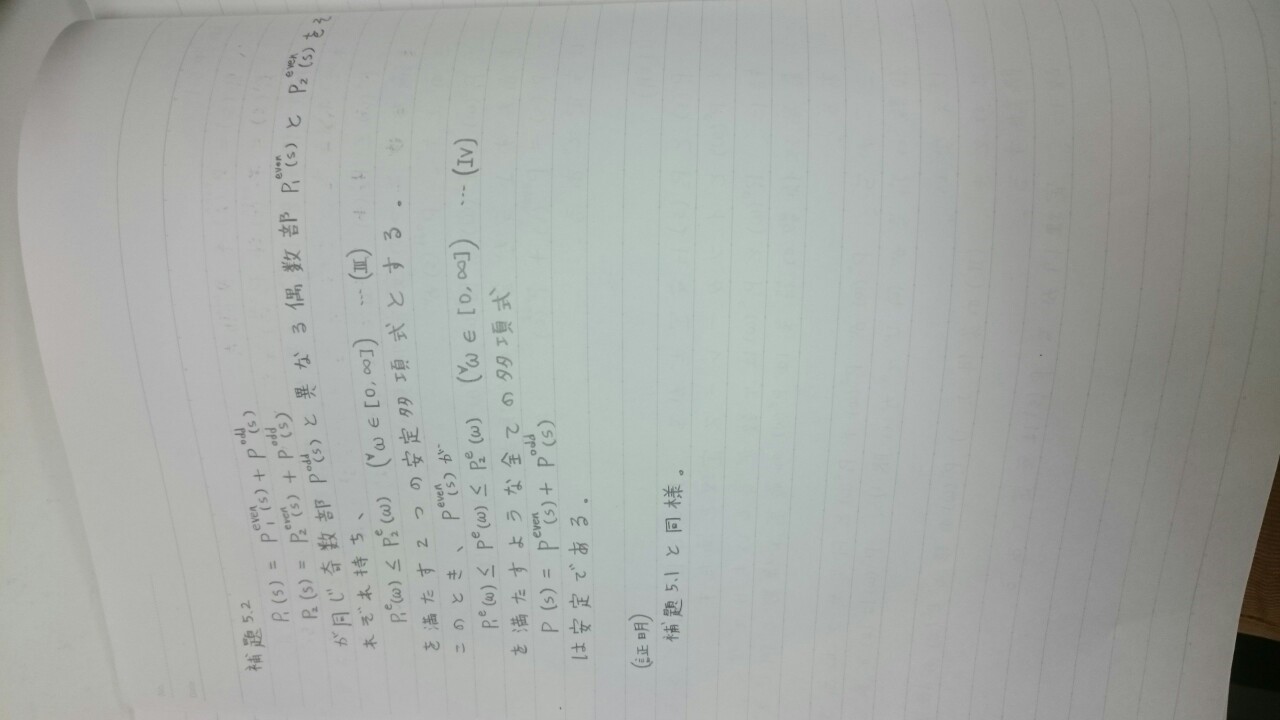 補題5.2
P₁(s) = P₁^even(s) + P^odd(s)
P₂(s) = P₂^even(s) + P^odd(s)
が同じ奇数部 P^odd(s) と異なる偶数部 P₁^even(s) と P₂^even(s) をそ
れぞれ持ち、
P₁^e(ω) ≤ P₂^e(ω) (∀ω ∈ [0, ∞]) … (Ⅲ)
を満たす2つの安定多項式とする.
このとき、P^even(s) が
P₁^e(ω) ≤ P^e(ω) ≤ P₂^e(ω) (∀ω ∈ [0, ∞]) … (Ⅳ)
を満たすような全ての多項式
P(s) = P^even(s) + P^odd(s)
は安定である.
(証明)
補題5.1と同様。